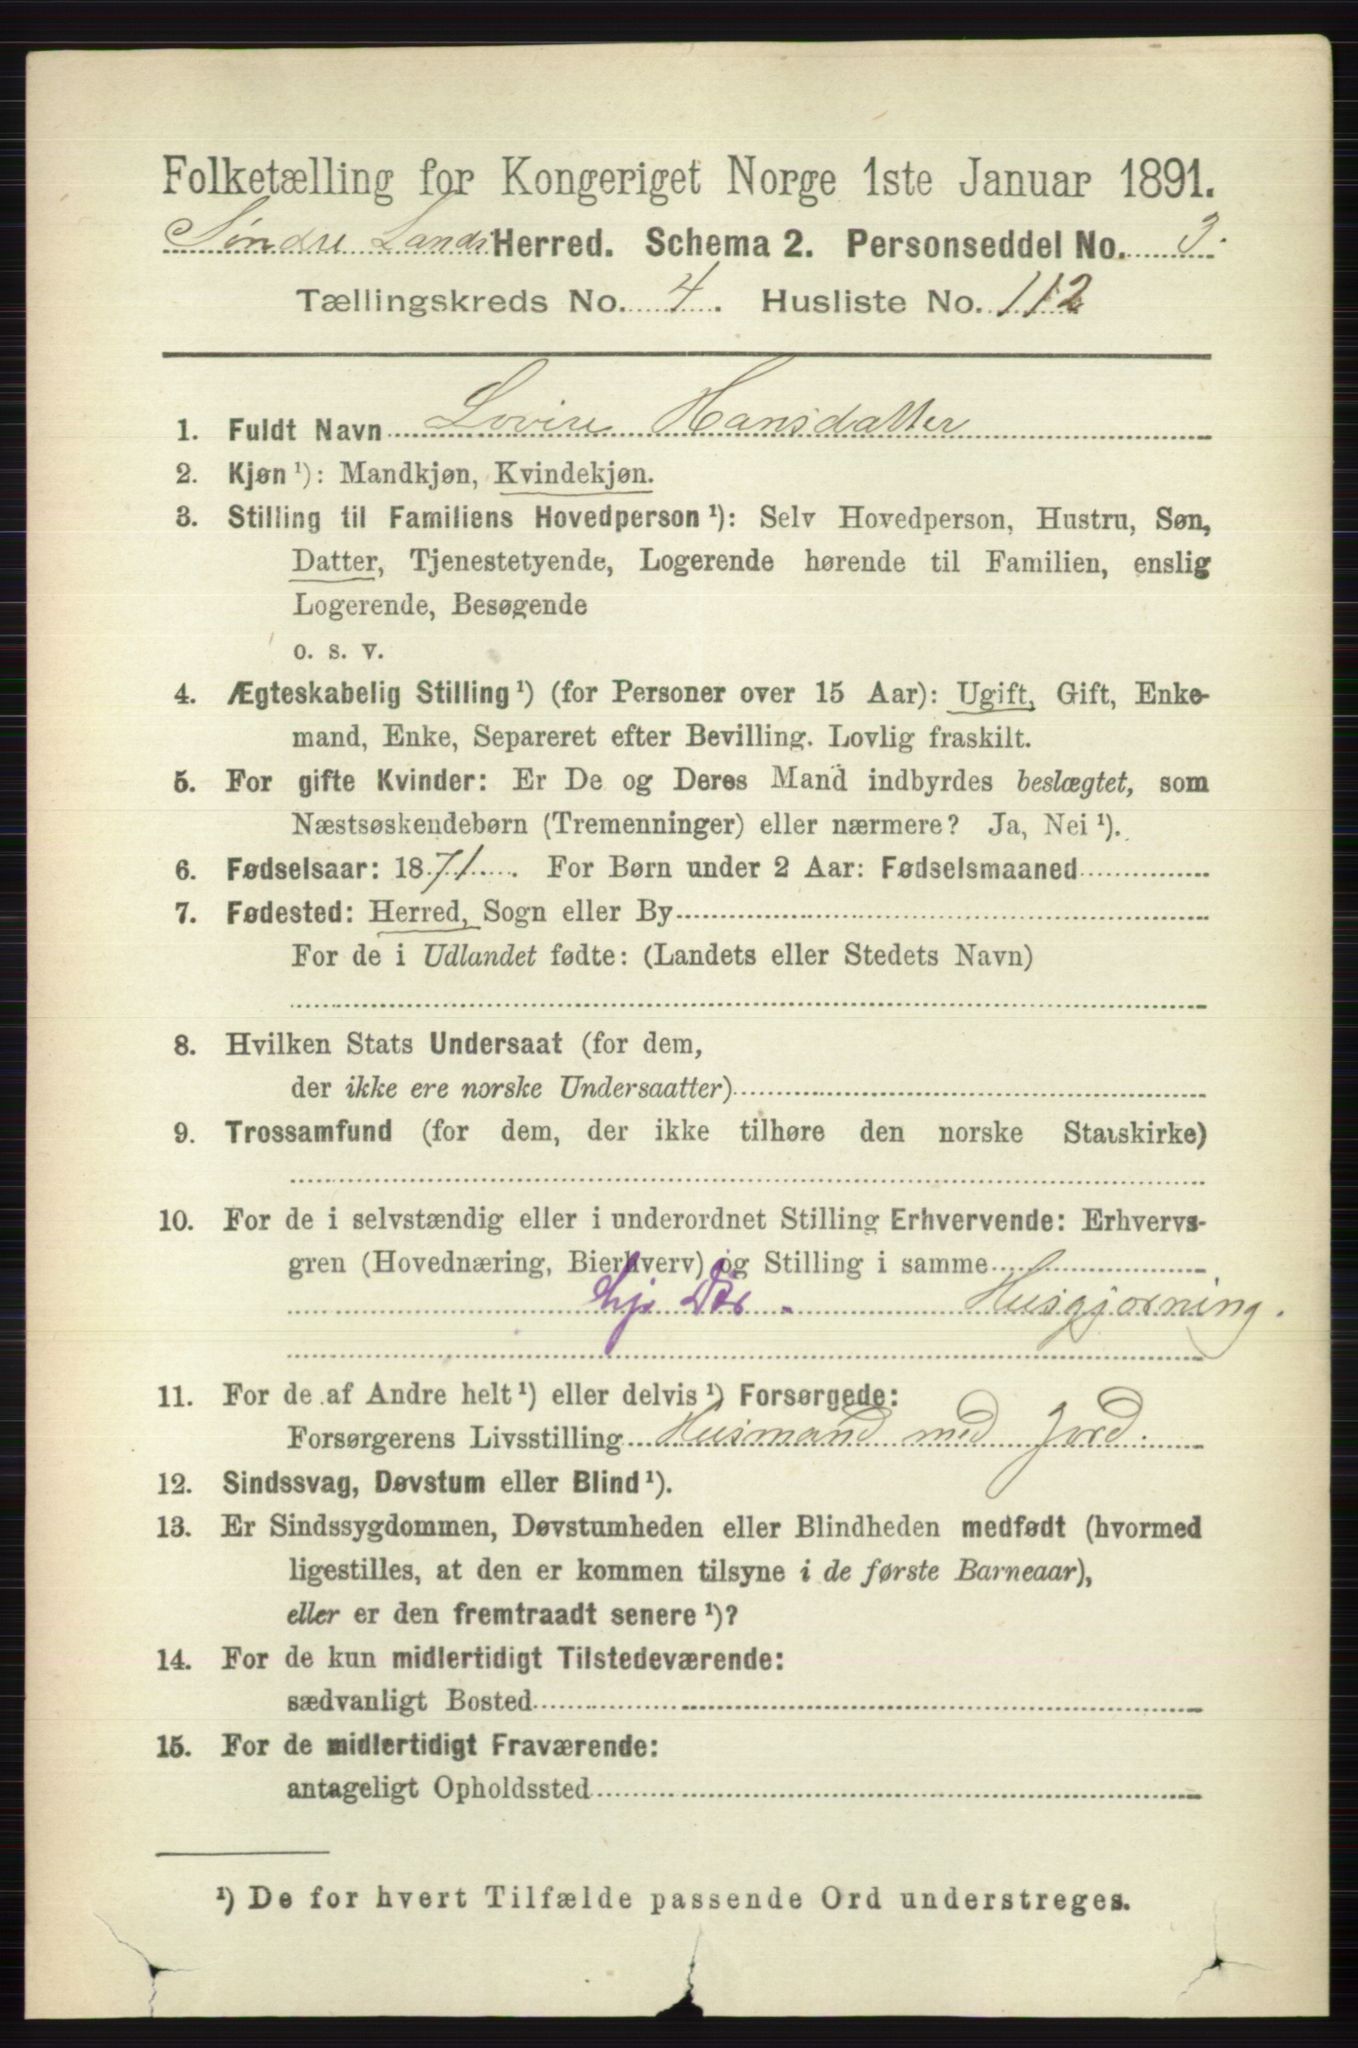 Folketælling for Kongeriget Norge 1ste Januar 1891.
Søndre Lands Herred. Schema 2. Personseddel No. 3.
Tællingskreds No. 4. Husliste No. 112
1. Fuldt Navn Lovise Hansdatter
2. Kjøn ¹): Mandkjøn, Kvindekjøn.
3. Stilling til Familiens Hovedperson ¹): Selv Hovedperson, Hustru, Søn,
Datter, Tjenestetyende, Logerende hørende til Familien, enslig
Logerende, Besøgende
o. s. v.
4. Ægteskabelig Stilling ¹) (for Personer over 15 Aar): Ugift, Gift, Enke-
mand, Enke, Separeret efter Bevilling. Lovlig fraskilt.
5. For gifte Kvinder: Er De og Deres Mand indbyrdes beslægtet, som
Næstsøskendebørn (Tremenninger) eller nærmere? Ja, Nei ¹).
6. Fødselsaar: 1871. For Børn under 2 Aar: Fødselsmaaned
7. Fødested: Herred, Sogn eller By
For de i Udlandet fødte: (Landets eller Stedets Navn)
8. Hvilken Stats Undersaat (for dem,
der ikke ere norske Undersaatter)
9. Trossamfund (for dem, der ikke tilhøre den norske Statskirke)
10. For de i selvstændig eller i underordnet Stilling Erhvervende: Erhvervs-
gren (Hovednæring, Bierhverv) og Stilling i samme
Husgjorning.
11. For de af Andre helt ¹) eller delvis ¹) Forsørgede:
Forsørgerens Livsstilling Husmand med Jord.
12. Sindssvag, Døvstum eller Blind ¹).
13. Er Sindssygdommen, Døvstumheden eller Blindheden medfødt (hvormed
ligestilles, at den er kommen tilsyne i de første Barneaar),
eller er den fremtraadt senere ¹)?
14. For de kun midlertidigt Tilstedeværende:
sædvanligt Bosted
15. For de midlertidigt Fraværende:
antageligt Opholdssted
¹) De for hvert Tilfælde passende Ord understreges.